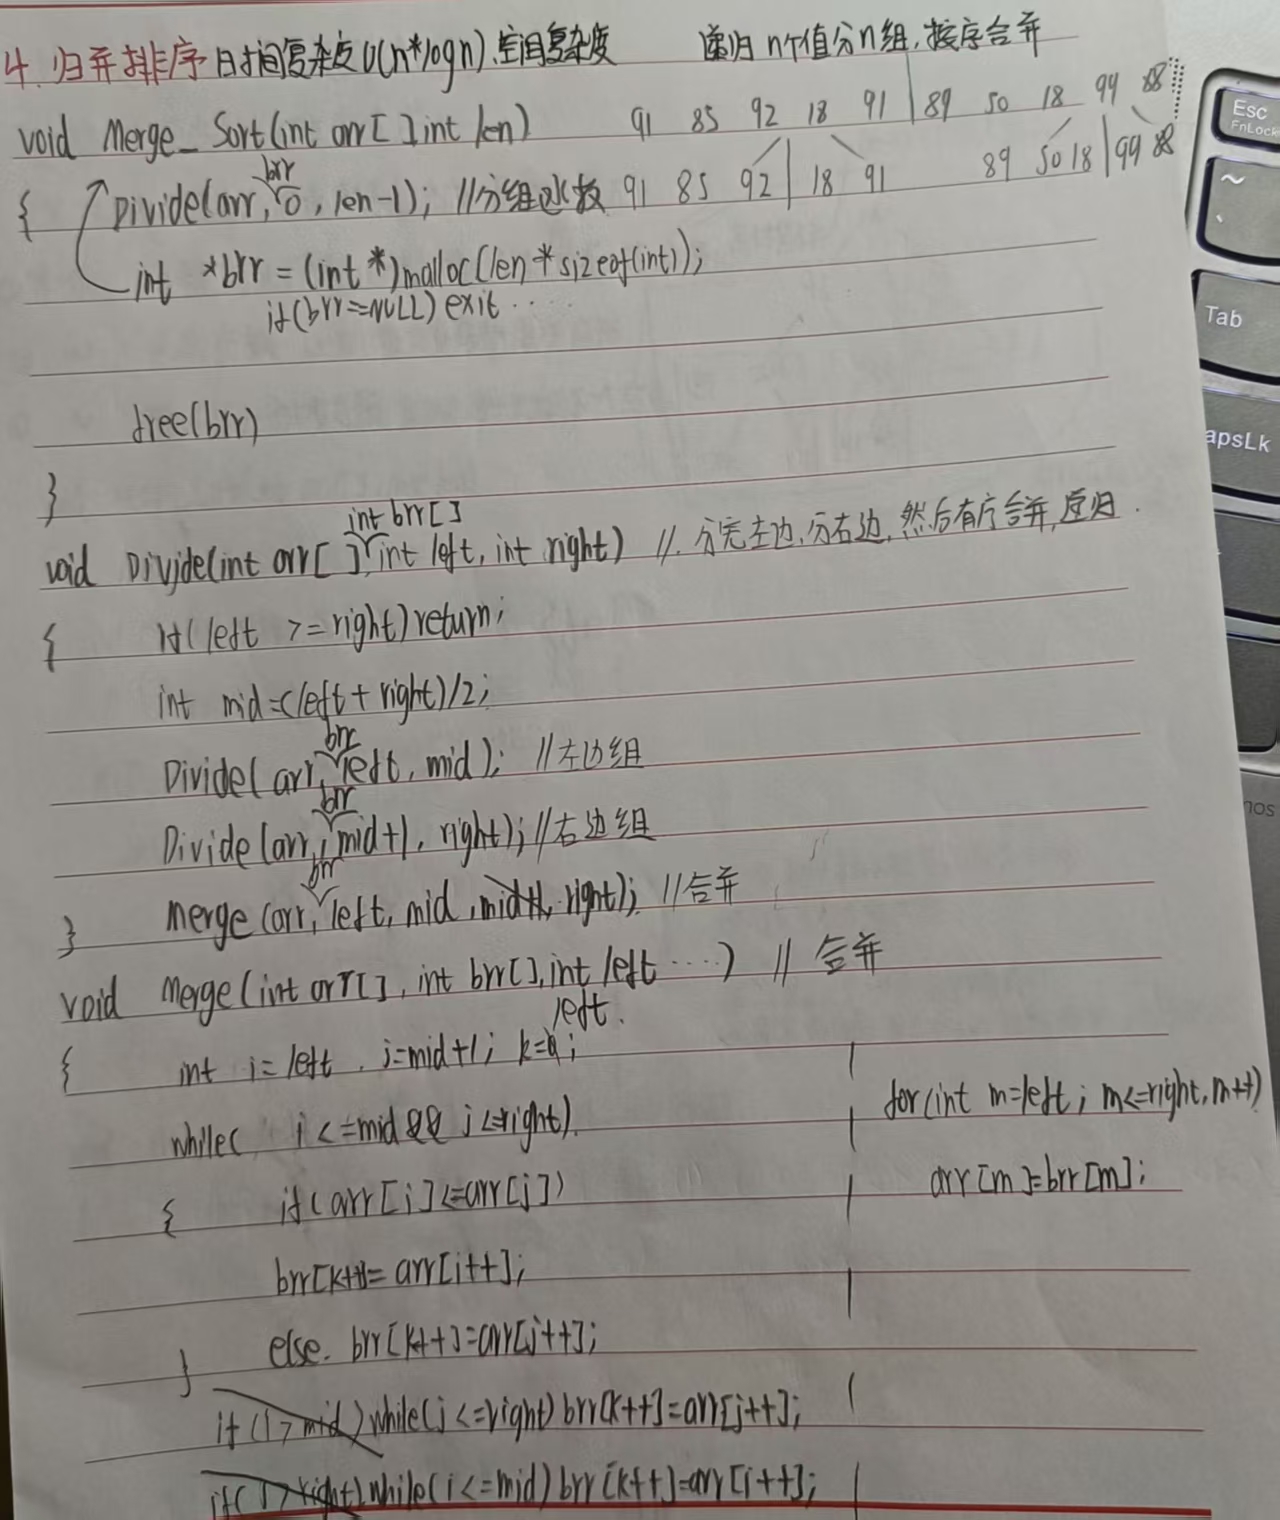 4. 归并排序 时间复杂度O(n*logn).空间复杂度 递归 n个值分n组,按序合并
void Merge_Sort(int arr[] int len) 91 85 92 18 91 | 89 50 18 99 88
{ Divide(arr, brr 0, len-1); //分组函数 91 85 92 | 18 91 89 50 18 | 99 88
int *brr = (int*)malloc(len*sizeof(int));
if(brr==NULL) exit ....
free(brr)
}
void Divide(int arr[], int brr[] int left, int right) // 分完左边,分右边,然后有序合并,递归.
{ if(left >= right)return;
int mid=(left + right)/2;
Divide( arr, brr left, mid); //左边组
Divide(arr, brr mid+1, right); //右边组
} Merge (arr, brr left, mid, mid+1, right); //合并
void Merge(int arr[], int brr[], int left ....) // 合并
left.
{ int i= left. j=mid+1; k= ;
while( i <=mid && j<=right) for(int m=left; m<=right, m++)
{ if( arr[i]<=arr[j]) arr[m]=brr[m];
brr[k++]= arr[i++];
} else. brr[k++]=arr[j++];
if (i > mid) while(j <=right) brr[k++]=arr[j++];
if(j > right) while(i <=mid) brr[k++]=arr[i++];
Esc
FnLock
~
Tab
apsLk